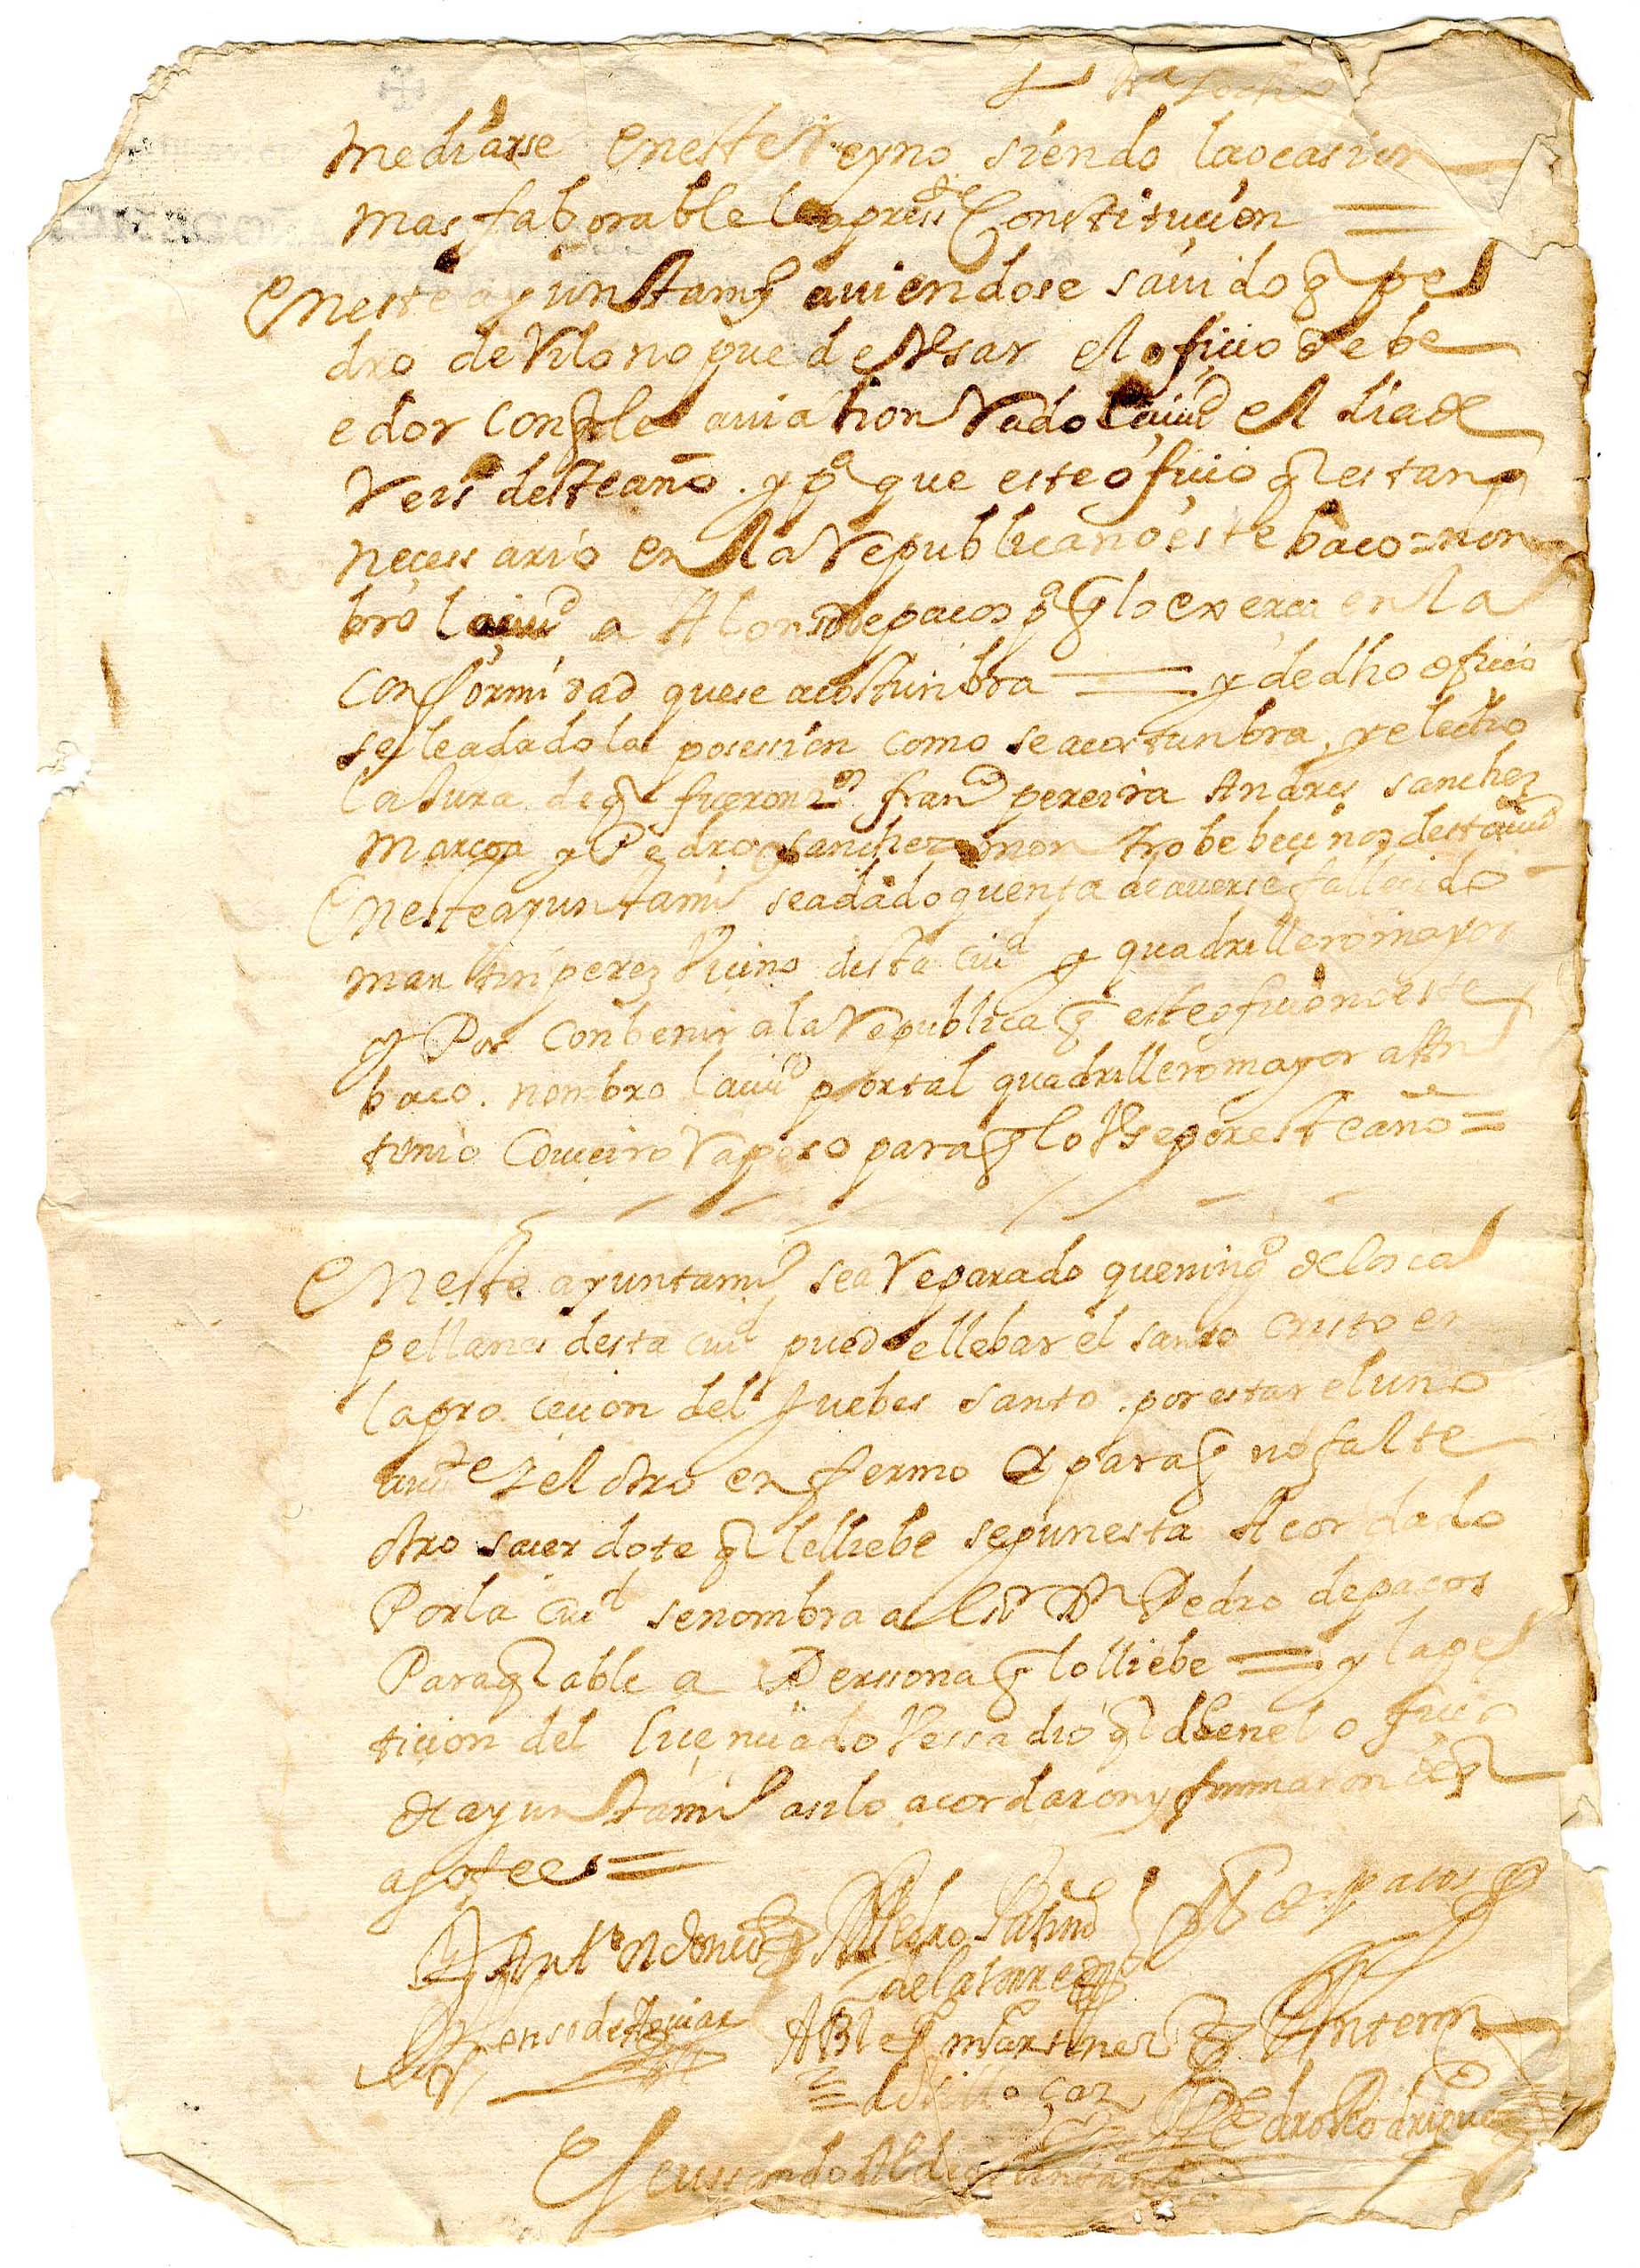 mediarse eneste Reyno siendo la ocasion
mas faborable la press.te Constitucion =
Eneste ayuntam.to auiendose sauido q pe
dro de Vilono que de Vsar el oficio de be
edor con q le auia honRado la ciu.d el dia de
Reis deste año. y p.a que este oficio q es tan
necessario en la Republica no este baco = nom
bro la ciu.d a Alonso de pacos p.a q lo exerca en la
conformidad que se acostunbra = y de dho oficio
se le a dado la posession como se acostunbra, y e hecho
la Jura de q fueron t.os fran.co pereira Andres sanchez
Marcoa y Pedro sanchez montrobe becinos desta ciu.d
Eneste ayuntami.to se a dado quenta de auerse fallecido
martin perez Vicino desta ciu.d y quadrillero mayor
y Por conbenir a la Republica q este oficio no este
baco. nombro la ciu.d por tal quadrillero mayor a An
tonio Couceiro Raposo para q lo Vse por este año =
Eneste ayuntam.to se a Reparado que ning.o de los ca
pellanes desta ciu.d puede llebar el santo cristo en
la procecion del Juebes santo. por estar el uno
y el otro enfermo y para q no falte
otro sacerdote q le lliebe segun esta Acordado
Por la ciu.d se nombra al s.r D.n Pedro de pacos
Para q able a Perssona q lo lliebe = y la pe
ticion del licenciado Pessadio q
de ayuntami.to asi lo acordaron y firmaron de q
yo fee =
Pedro Patiño
de pacos
de la torre
Alonso de Aguiar
Martinez
Ante mi
Pedro Rodriguez